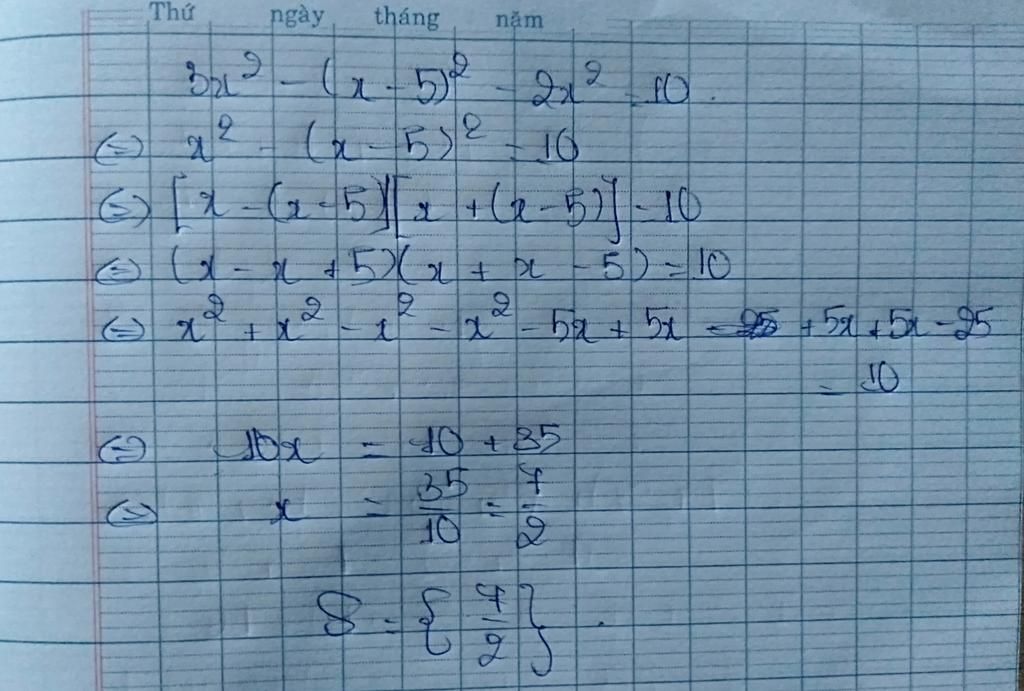 Thứ ngày tháng năm
3x² - (x - 5)² - 2x² = 10.
⇔) x² - (x - 5)² = 10
⇔) [x - (x - 5)][x + (x - 5)] = 10
⇔) (x - x + 5)(x + x - 5) = 10
⇔) x² + x² - x² - x² - 5x + 5x + 5x + 5x - 25
= 10
⇔) 10x = 10 + 35
⇔) x = 35/10 = 7/2
S = {7/2}.